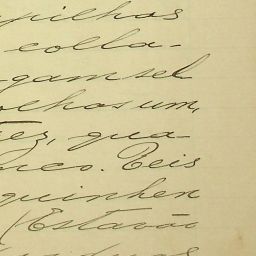 pilhas
colla-
gam sel
olhas um,
rez, qua-
nco. Reis
quinhen
(Estavão